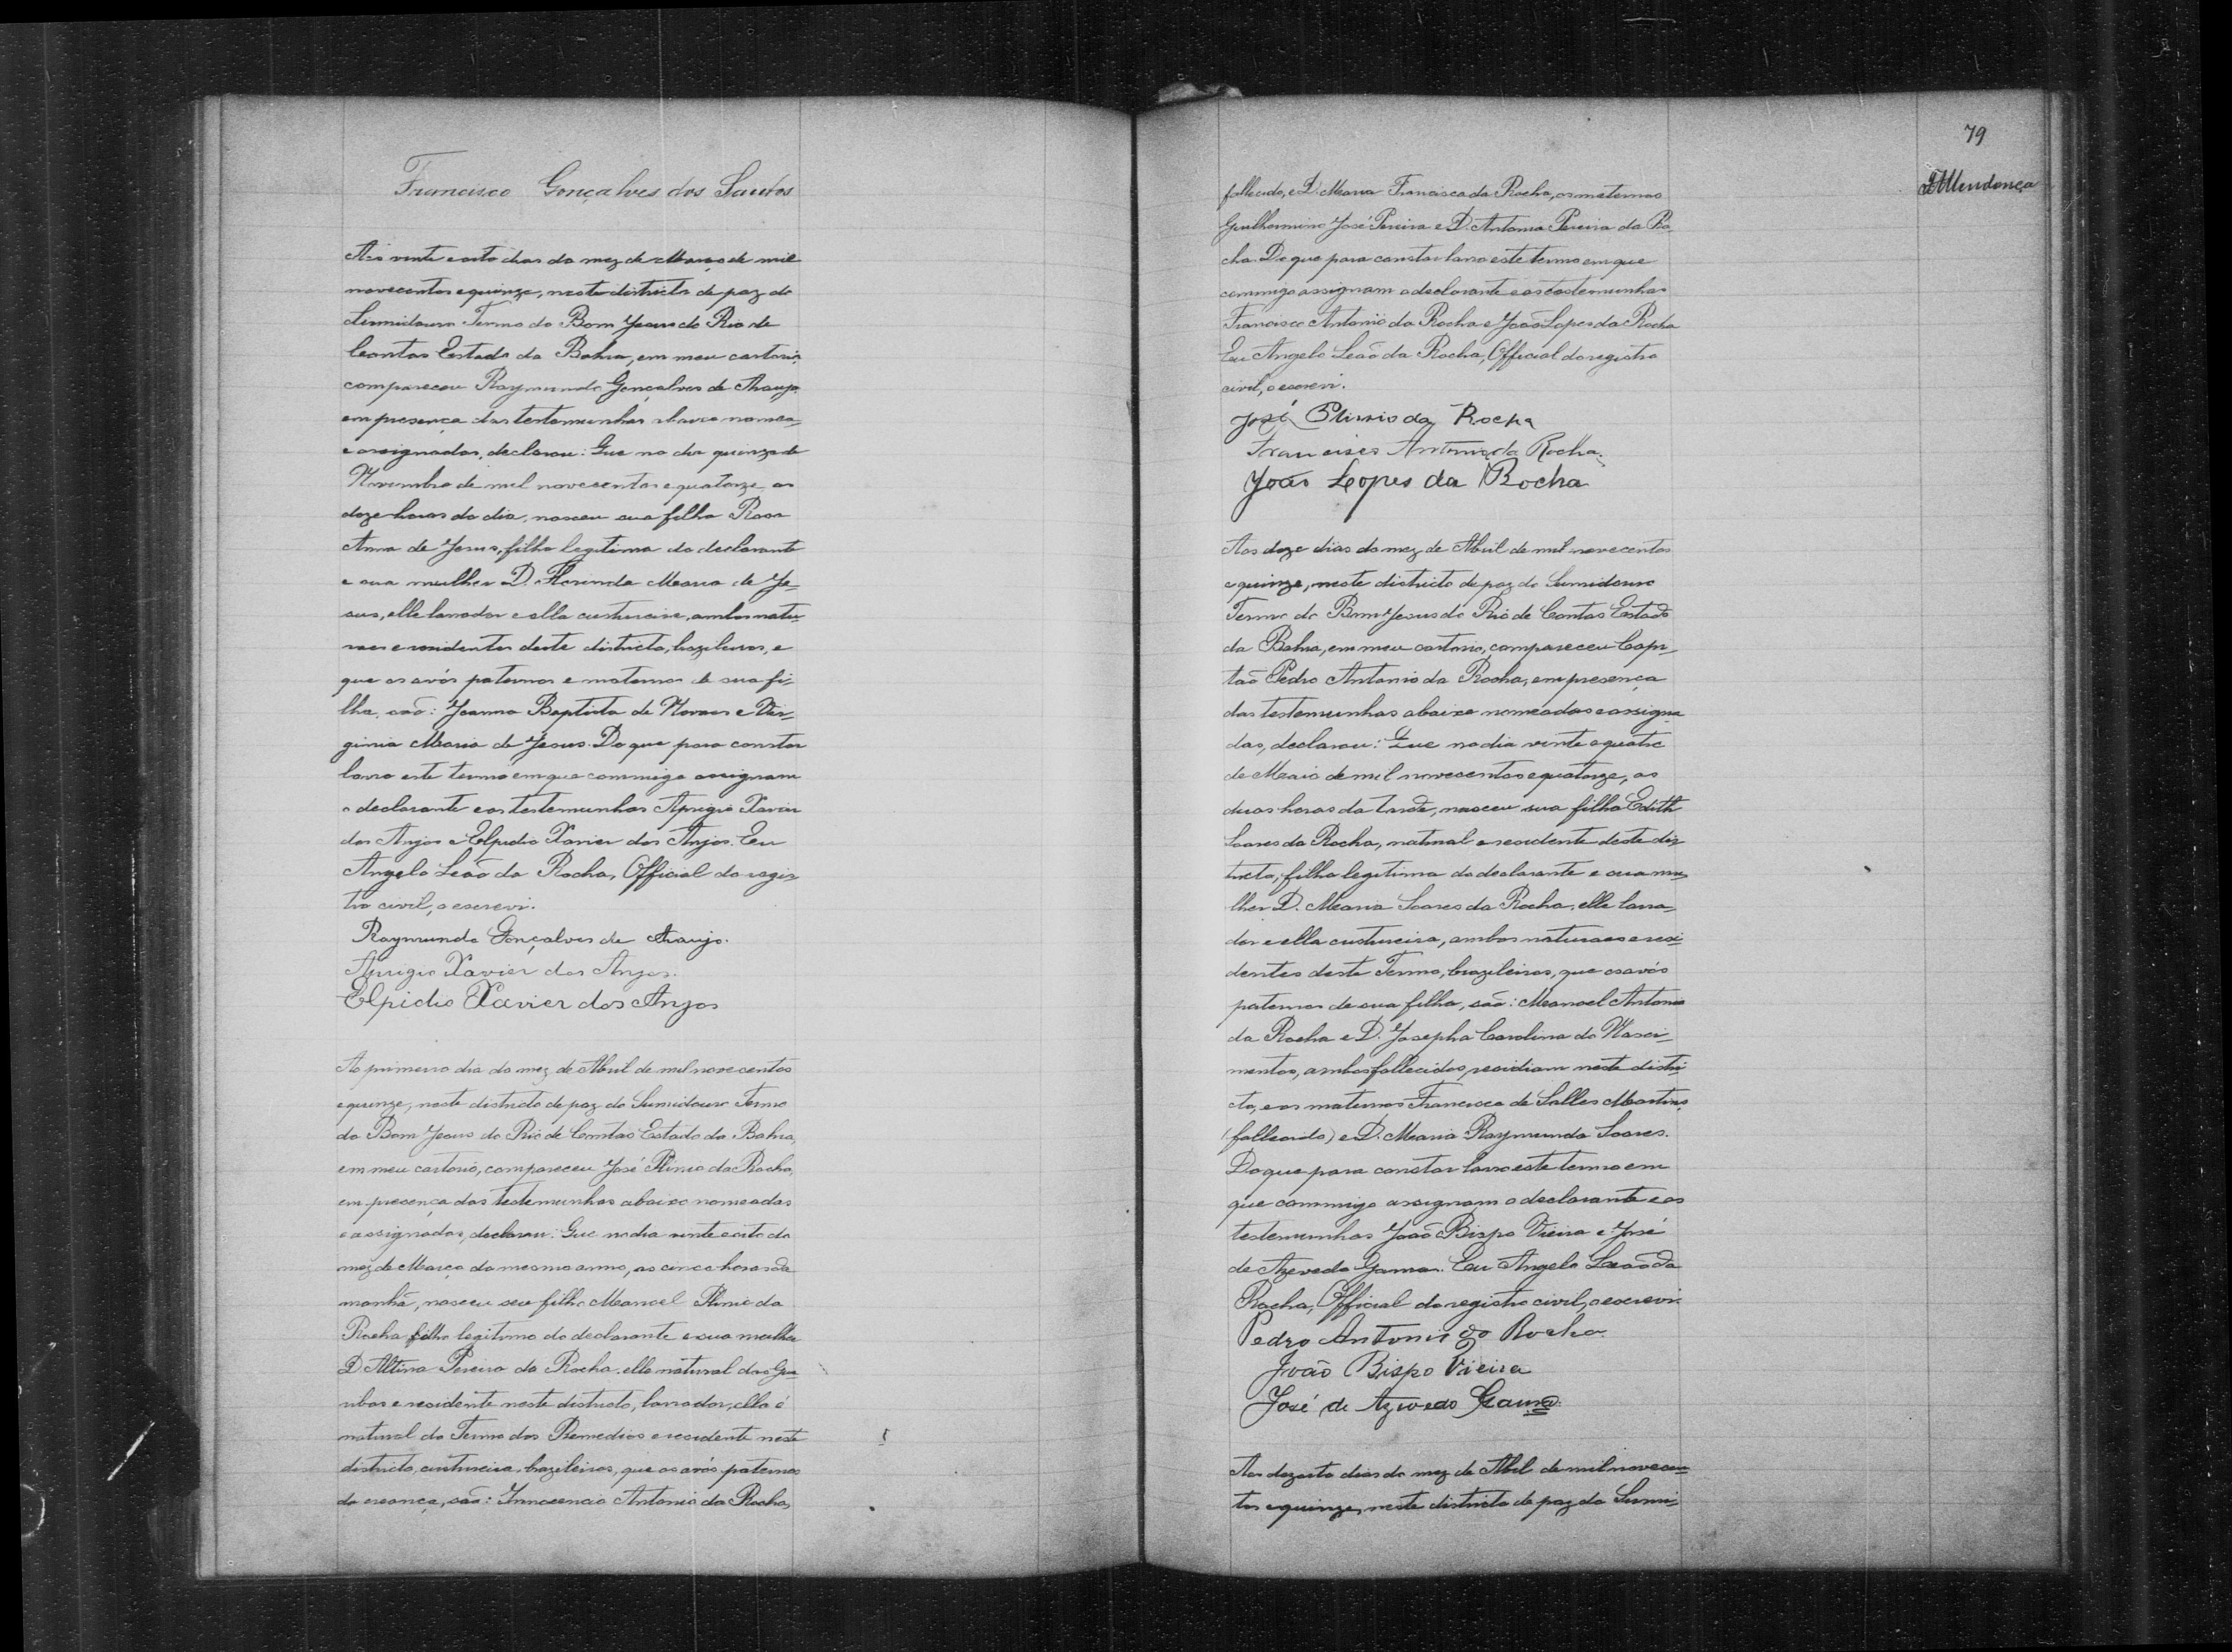 Francisco Gonçalves dos Santos
Aos vinte e oito dias do mez de Março de mil
novecentos e quinze, neste districto de paz do
Sumidouro Termo do Bom Jesus do Rio de
Contas Estado da Bahia, em meu cartorio,
compareceu Raymundo Gonçalves de Araujo
em presença das testemunhas abaixo nomea-
e assignadas, declarou: Que no dia quinze de
Novembro de mil novecentos e quatorze, as
doze horas do dia, nasceu sua filha Rosa
Anna de Jesus, filha legitima do declarante
e sua mulher D. Florinda Maria de Je-
sus, elle lavrador e ella custureira, ambos natu-
raes e residentes deste districto, brazileiros, e
que os avós paternos e maternos de sua fi-
lha, são: Joanna Baptista de Novaes e Vir-
ginia Maria de Jesus. Do que para constar
lavro este termo em que commigo assignam
o declarante e as testemunhas Aprigio Xavier
dos Anjos e Elpidio Xavier dos Anjos. Eu
Angelo Leão da Rocha, Official do regis-
tro civil, o escrevi.
Raymundo Gonçalves de Araujo.
Aprigio Xavier dos Anjos.
Elpidio Xavier dos Anjos
Ao primeiro dia do mez de Abril de mil novecentos
e quinze, neste districto de paz do Sumidouro Termo
do Bom Jesus do Rio de Contas Estado da Bahia,
em meu cartorio, compareceu José Plinio da Rocha,
em presença das testemunhas abaixo nomeadas
e assignadas, declarou: Que no dia vinte e oito do
mez de Março do mesmo anno, as cinco horas da
manhã, nasceu seu filho Manoel Plinio da
Rocha filho legitimo do declarante e sua mulher
D. Altina Pereira da Rocha, elle natural das Gua
ribas e residente neste districto, lavrador, ella é
natural do Termo dos Remedios e residente neste
districto, custureira, brazileiros, que os avós paternos
da creança, são: Innocencio Antonio da Rocha,
79
Mendonça
fallecido, e D. Maria Francisca da Rocha, os maternos
Guilhermino José Pereira e D. Antonia Pereira da Ro-
cha. Do que para constar lavro este termo em que
commigo assignam o declarante e as testemunhas
Francisco Antonio da Rocha e João Lopes da Rocha
Eu Angelo Leão da Rocha, Official do registro
civil, o escrevi.
José Plinio da Rocha
Francisco Antonio da Rocha.
João Lopes da Rocha
Aos doze dias do mez de Abril de mil novecentos
e quinze, neste districto de paz do Sumidouro
Termo do Bom Jesus do Rio de Contas Estado
da Bahia, em meu cartorio, compareceu Capi-
tão Pedro Antonio da Rocha, em presença
das testemunhas abaixo nomeadas e assigna
das, declarou: Que no dia vinte e quatro
de Maio de mil novecentos e quatorze, as
duas horas da tarde, nasceu sua filha Edith
Soares da Rocha, natural e residente deste dis
tricto, filha legitima do declarante e sua mu-
lher D. Maria Soares da Rocha, elle lavra-
dor e ella custureira, ambos naturaes e resi-
dentes deste Termo, brazileiros, que os avós
paternos de sua filha, são: Manoel Antonio
da Rocha e D. Josepha Carolina do Nasci-
mentos, ambos fallecidos, residiam neste distri-
cto, e os maternos Francisco de Salles Martins,
(fallecido) e D. Maria Raymunda Soares.
Do que para constar lavro este termo em
que commigo assignam o declarante e as
testemunhas João Bispo Vieira e José
de Azevedo Gama. Eu Angelo Leão da
Rocha, Official do registro civil, o escrevi.
Pedro Antonio da Rocha
João Bispo Vieira
José de Azevedo Gama
Aos dezoito dias do mez de Abril de mil novecen-
tos e quinze, neste districto de paz do Sumi-